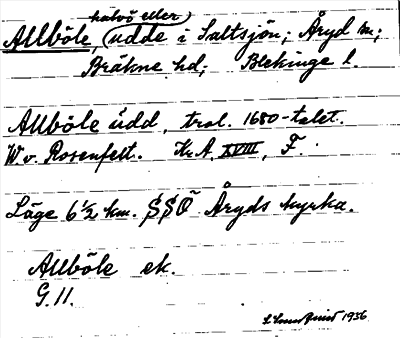 halvö eller
Allböle, (udde i Saltsjön; Åryd sn;
Bräkne hd; Blekinge l.
Allböle udd, trol. 1680-talet.
W v. Rosenfelt. Kr. A. XVIII, F.
Läge 6 1/2 km. SSO Åryds kyrka.
Allböle ek.
G. 11.
1936